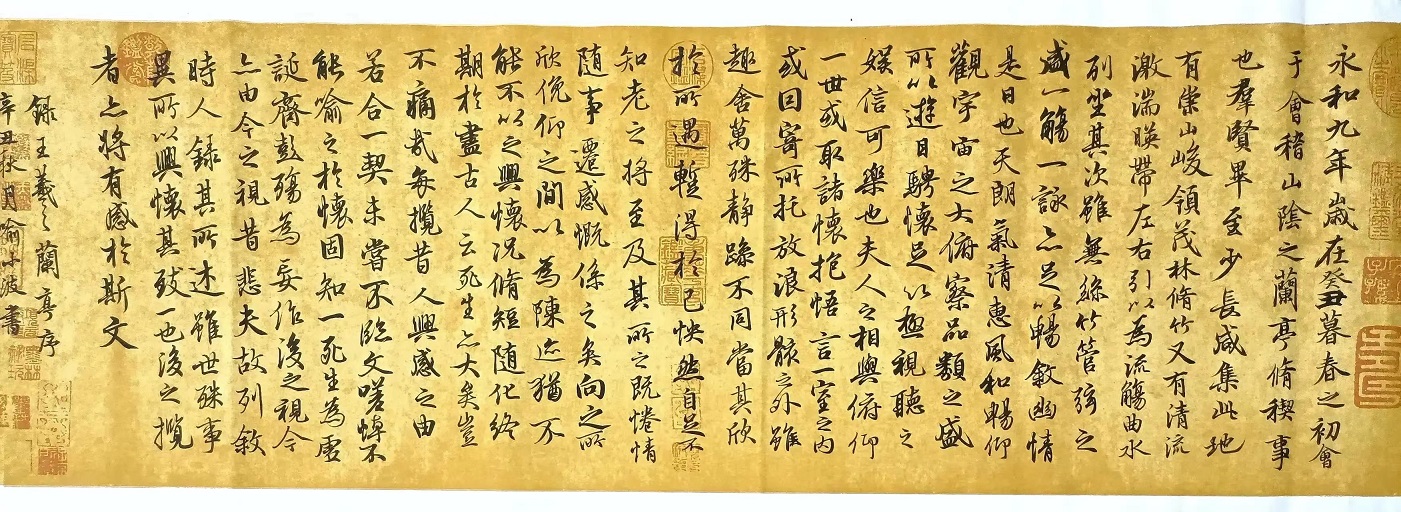 永和九年歲在癸丑暮春之初會
于會稽山陰之蘭亭脩稧事
也羣賢畢至少長咸集此地
有崇山峻領茂林脩竹又有清流
激湍暎帶左右引以為流觴曲水
列坐其次雖無絲竹管弦之
盛一觴一詠亦足以暢敘幽情
是日也天朗氣清惠風和暢仰
觀宇宙之大俯察品類之盛
所以遊目騁懷足以極視聽之
娛信可樂也夫人之相與俯仰
一世或取諸懷抱悟言一室之內
或因寄所托放浪形骸之外雖
趣舍萬殊靜躁不同當其欣
於所遇蹔得於己怏然自足不
知老之將至及其所之既惓情
隨事遷感慨係之矣向之所
欣俛仰之間以為陳迹猶不
能不以之興懷況脩短隨化終
期於盡古人云死生亦大矣豈
不痛哉每攬昔人興感之由
若合一契未嘗不臨文嗟悼不
能喻之於懷固知一死生為虛
誕齊彭殤為妄作後之視今
亦由今之視昔悲夫故列敘
時人錄其所述雖世殊事
異所以興懷其致一也後之攬
者亦將有感於斯文
錄王羲之蘭亭序
辛丑秋月喻小波書